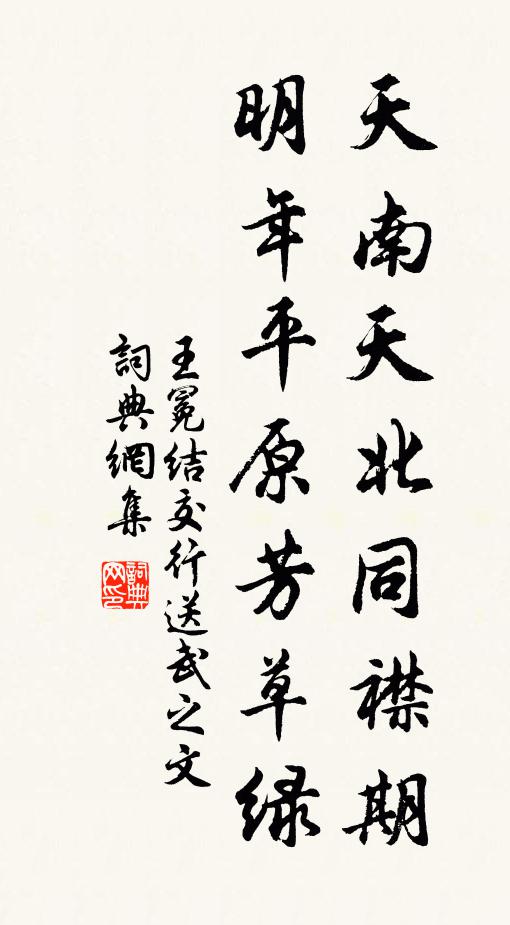 天南天北同襟期
明年平原芳草绿
王冕结交行送武之文
詞典網集
詞典网印